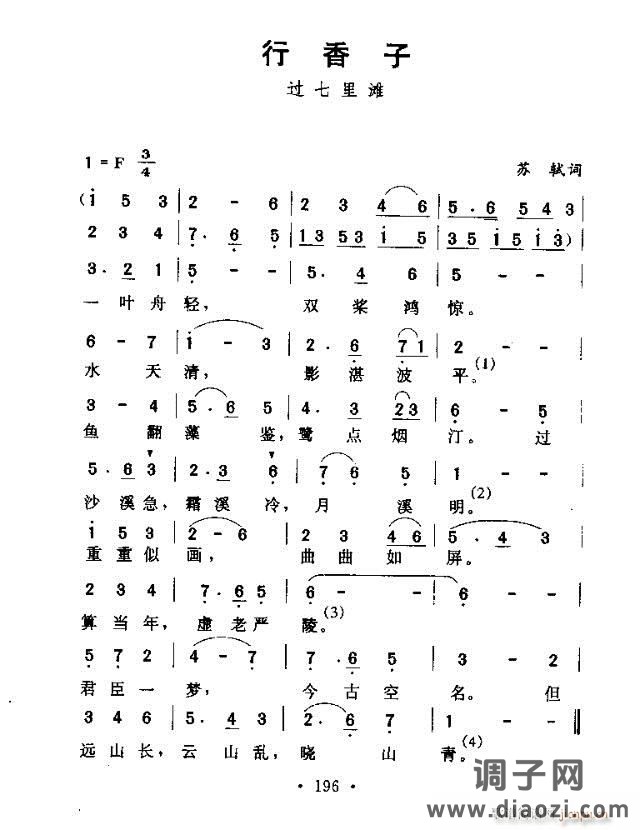 行香子
过七里滩
1=F 3/4
苏轼词
(i 5 3 | 2 - 6 | 2 3 4 6 | 5 . 6 5 4 3 |
2 3 4 | 7 . 6 5 | 1 3 5 3 i 5 | 3 5 1 5 i 3 )|
3 . 2 1 | 5 - - | 5 . 4 6 | 5 - - |
一叶舟轻， 双桨鸿惊。
6 - 7 | i - 3 | 2 . 6 7 1 | 2 - - |
水天清， 影湛波平。(1)
3 - 4 | 5 . 6 5 | 4 . 3 2 3 | 6 - 5 |
鱼翻藻鉴，鹭点烟汀。过
5 . 6 3 | 2 . 3 6 | 7 6 5 | 1 - - |
沙溪急，霜溪冷，月溪明。(2)
i 5 3 | 2 - 6 | 2 3 4 6 | 5 . 4 3 |
重重似画， 曲曲如屏。
2 3 4 | 7 . 6 5 | 6 - - | 6 - - |
算当年，虚老严陵。(3)
5 7 2 | 4 - 7 | 7 . 6 5 | 3 - 2 |
君臣一梦， 今古空名。但
3 4 6 | 5 . 4 3 | 2 . 6 7 | 1 - - ‖
远山长，云山乱，晓山青。(4)
· 196 ·
调子网
www.diaozi.com